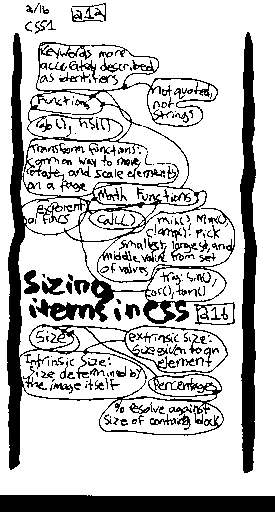 a/16
CSS1
a1a
Keywords more
accurately described
as identifiers
not quoted,
not
strings
Functions
rgb(), hsl()
Transform functions:
common way to move,
rotate, and scale elements
on a page
Math Functions
exponential
funcs
calc()
min(), max(),
clamp(): pick
smallest, largest, and
middle value from set
of values
trig: sin(),
cos(), tan()
Sizing
items in CSS
a1b
Size
extrinsic size:
size given to an
element
Intrinsic Size:
size determined by
the image itself
Percentages
% resolve against
size of containg block